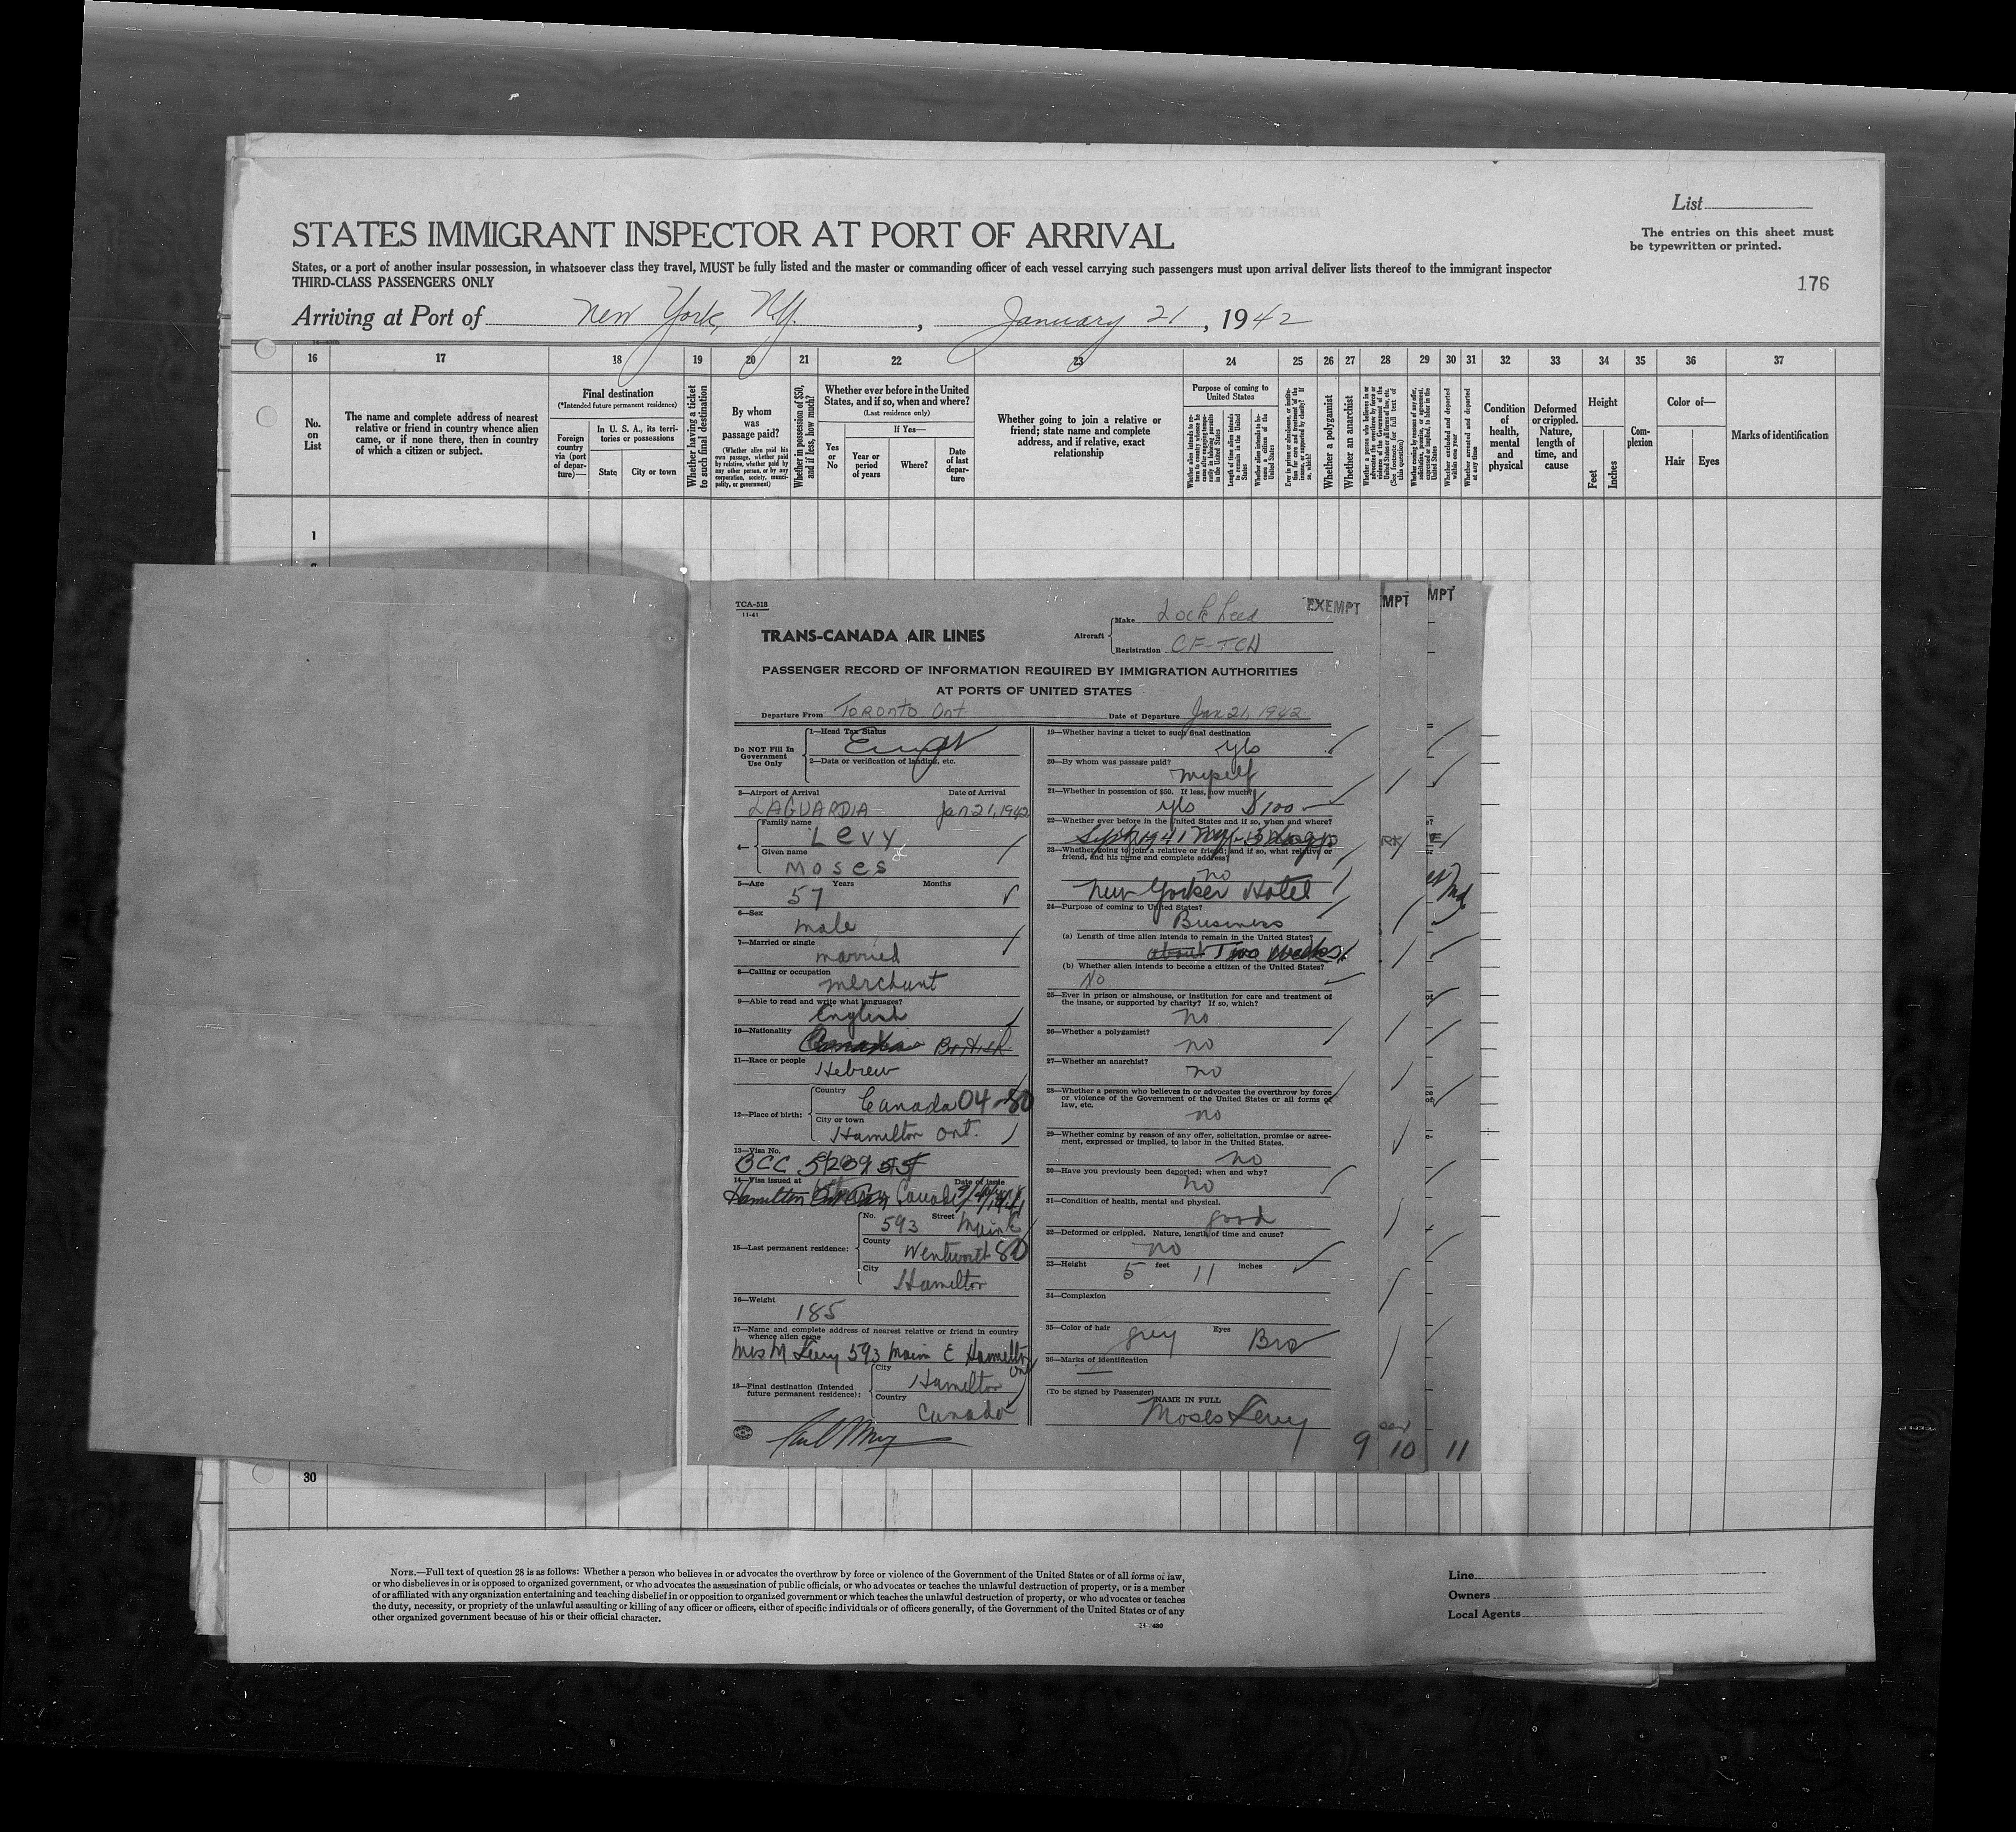 List
The entries on this sheet must
be typewritten or printed.
STATES IMMIGRANT INSPECTOR AT PORT OF ARRIVAL
States, or a port of another insular possession, in whatsoever class they travel, MUST be fully listed and the master or commanding officer of each vessel carrying such passengers must upon arrival deliver lists thereof to the immigrant inspector
THIRD-CLASS PASSENGERS ONLY
176
Arriving at Port of New York, N.Y. , January 21, 1942
16 17 18 19 20 21 22 23 24 25 26 27 28 29 30 31 32 33 34 35 36 37
No.
on
List
The name and complete address of nearest
relative or friend in country whence alien
came, or if none there, then in country
of which a citizen or subject.
Final destination
(*Intended future permanent residence)
Foreign
country
via (port
of depar-
ture)—
In U. S. A., its terri-
tories or possessions
State
City or town
Whether having a ticket
to such final destination
By whom
was
passage paid?
(Whether alien paid his
own passage, whether paid
by relative, whether paid by
any other person, or by any
corporation, society, munici-
pality, or government)
Whether in possession of $50,
and if less, how much?
Whether ever before in the United
States, and if so, when and where?
(Last residence only)
If Yes—
Yes
or
No
Year or
period
of years
Where?
Date
of last
depar-
ture
Whether going to join a relative or
friend; state name and complete
address, and if relative, exact
relationship
Purpose of coming to
United States
Length of time alien intends
to remain in the United
States
Whether a polygamist
Whether an anarchist
Whether arrested and deported
at any time
Condition
of
health,
mental
and
physical
Deformed
or crippled.
Nature,
length of
time, and
cause
Height
Feet
Inches
Com-
plexion
Color of—
Hair
Eyes
Marks of identification
1
TCA-518
11-41
TRANS-CANADA AIR LINES
Aircraft
Make Lockheed
Registration CF-TCD
EXEMPT
MPT
MPT
PASSENGER RECORD OF INFORMATION REQUIRED BY IMMIGRATION AUTHORITIES
AT PORTS OF UNITED STATES
Departure From Toronto Ont
Date of Departure Jan 21, 1942
Do NOT Fill In
Government
Use Only
1—Head Tax Status
2—Data or verification of landing, etc.
3—Airport of Arrival Date of Arrival
LAGUARDIA Jan 21, 1942
4—
Family name
LEVY
Given name
MOSES
5—Age Years Months
57
6—Sex
male
7—Married or single
married
8—Calling or occupation
merchant
9—Able to read and write what languages?
English
10—Nationality
British
11—Race or people
Hebrew
12—Place of birth:
Country
Canada 04-80
City or town
Hamilton Ont.
13—Visa No.
BCC
14—Visa issued at Date of issue
Hamilton Canada
15—Last permanent residence:
No. 593 Street Main E
County
Wentworth 80
City
Hamilton
16—Weight
185
17—Name and complete address of nearest relative or friend in country
whence alien came
Mrs M Levy 593 Main E Hamilton
Ont
18—Final destination (Intended
future permanent residence):
City
Hamilton
Country
Canada
19—Whether having a ticket to such final destination
yes
20—By whom was passage paid?
myself
21—Whether in possession of $50. If less, how much?
yes $100
22—Whether ever before in the United States and if so, when and where?
Sept 1941
23—Whether going to join a relative or friend; and if so, what relative or
friend, and his name and complete address?
no
New Yorker Hotel
24—Purpose of coming to United States?
Business
(a) Length of time alien intends to remain in the United States?
about Two weeks
(b) Whether alien intends to become a citizen of the United States?
No
25—Ever in prison or almshouse, or institution for care and treatment of
the insane, or supported by charity? If so, which?
no
26—Whether a polygamist?
no
27—Whether an anarchist?
no
28—Whether a person who believes in or advocates the overthrow by force
or violence of the Government of the United States or all forms of
law, etc.
no
29—Whether coming by reason of any offer, solicitation, promise or agree-
ment, expressed or implied, to labor in the United States.
no
30—Have you previously been deported; when and why?
no
31—Condition of health, mental and physical.
good
32—Deformed or crippled. Nature, length of time and cause?
no
33—Height 5 feet 11 inches
34—Complexion
35—Color of hair grey Eyes Bro
36—Marks of identification
(To be signed by Passenger)
NAME IN FULL
Moses Levy
9 10 11
30
NOTE.—Full text of question 28 is as follows: Whether a person who believes in or advocates the overthrow by force or violence of the Government of the United States or of all forms of law,
or who disbelieves in or is opposed to organized government, or who advocates the assassination of public officials, or who advocates or teaches the unlawful destruction of property, or is a member
of or affiliated with any organization entertaining and teaching disbelief in or opposition to organized government or which teaches the unlawful destruction of property, or who advocates or teaches
the duty, necessity, or propriety of the unlawful assaulting or killing of any officer or officers, either of specific individuals or of officers generally, of the Government of the United States or of any
other organized government because of his or their official character.
Line
Owners
Local Agents